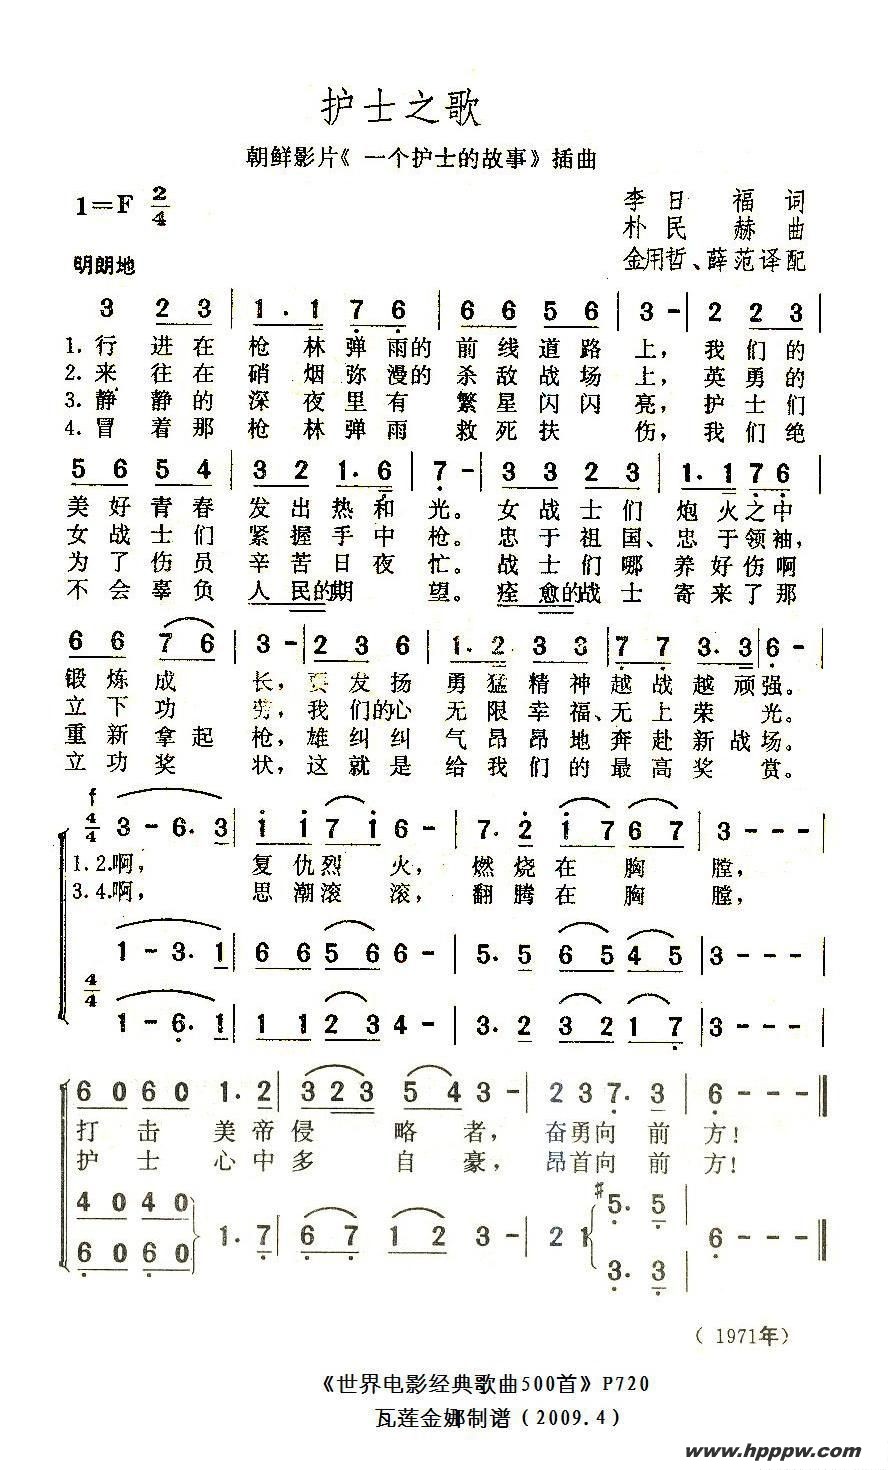 护士之歌
朝鲜影片《一个护士的故事》插曲
1=F 2/4
李日福词
朴民赫曲
金用哲、薛范译配
明朗地
3 2 3 | 1. 1 7 6 | 6 6 5 6 | 3 - | 2 2 3 |
1.行进在枪林弹雨的前线道路上，我们的
2.来往在硝烟弥漫的杀敌战场上，英勇的
3.静静的深夜里有繁星闪闪亮，护士们
4.冒着那枪林弹雨救死扶伤，我们绝
5 6 5 4 | 3 2 1. 6 | 7 - | 3 3 2 3 | 1. 1 7 6 |
美好青春发出热和光。女战士们炮火之中
女战士们紧握手中枪。忠于祖国、忠于领袖，
为了伤员辛苦日夜忙。战士们哪养好伤啊
不会辜负人民的期望。痊愈的战士寄来了那
6 6 7 6 | 3 - | 2 3 6 | 1. 2 3 3 | 7 7 3. 3 | 6 - |
锻炼成长，要发扬勇猛精神越战越顽强。
立下功劳，我们的心无限幸福、无上荣光。
重新拿起枪，雄纠纠气昂昂地奔赴新战场。
立功奖状，这就是给我们的最高奖赏。
f
4/4 3 - 6. 3 | 1 1 7 1 6 - | 7. 2 1 7 6 7 | 3 - - - |
1.2.啊，复仇烈火，燃烧在胸膛，
3.4.啊，思潮滚滚，翻腾在胸膛，
1 - 3. 1 | 6 6 5 6 6 - | 5. 5 6 5 4 5 | 3 - - - |
4/4
1 - 6. 1 | 1 1 2 3 4 - | 3. 2 3 2 1 7 | 3 - - - |
6 0 6 0 1. 2 | 3 2 3 5 4 3 - | 2 3 7. 3 | 6 - - - ‖
打击美帝侵略者，奋勇向前方！
护士心中多自豪，昂首向前方！
4 0 4 0 #5. 5
1. 7 | 6 7 1 2 3 - | 2 1 6 - - - ‖
6 0 6 0 3. 3
（1971年）
《世界电影经典歌曲500首》P720
瓦莲金娜制谱（2009.4）
www.hpppw.com